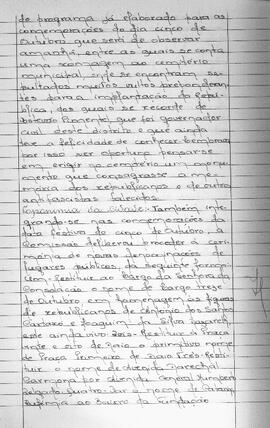 de programa já elaborado para as
comemorações do dia cinco de
Outubro que será de observar
amanhã, entre as quais se conta
uma romagem ao cemitério
municipal onde se encontram se-
pultados muitos vultos preponderan-
tes para a implantação da Repú-
blica, dos quais se recorda de
Pimentel, que foi governador
civil deste distrito e que ainda
teve a felicidade de conhecer bem
por isso ser oportuno pensar-se
em erigir no cemitério um monu-
mento que consagrasse a me-
mória dos republicanos e de outros
antifascistas falecidos.
Toponímia da cidade: Também inte-
grando-se nas comemorações da
data festiva do cinco de Outubro, a
Comissão deliberou proceder à ceri-
mónia de novas denominações de
lugares públicos, da seguinte forma:
Um - Restituir ao Largo da Senhora da
Consolação o nome de Largo Treze
de Outubro em homenagem às figuras
de republicanos de António dos Santos
Cartaxo e Joaquim da Silva
este ainda vivo. Dois - Restituir à Praça
vinte e oito de Maio o primitivo nome
de Praça Primeiro de Maio. Três - Resti-
tuir o nome de Avenida Marechal
Carmona por Avenida General Humberto
Delgado. Quatro - Dar o nome de
ao Bairro da Fundação